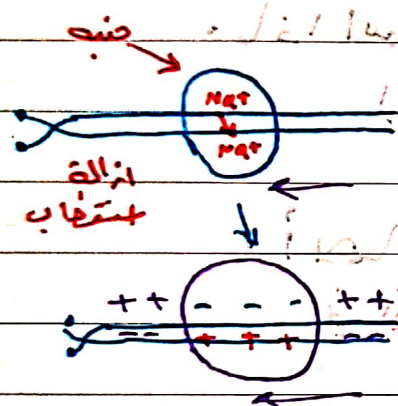 منبه
Na+
Na+
ازالة
استقطاب
+ + - - - + +
-- + + + --